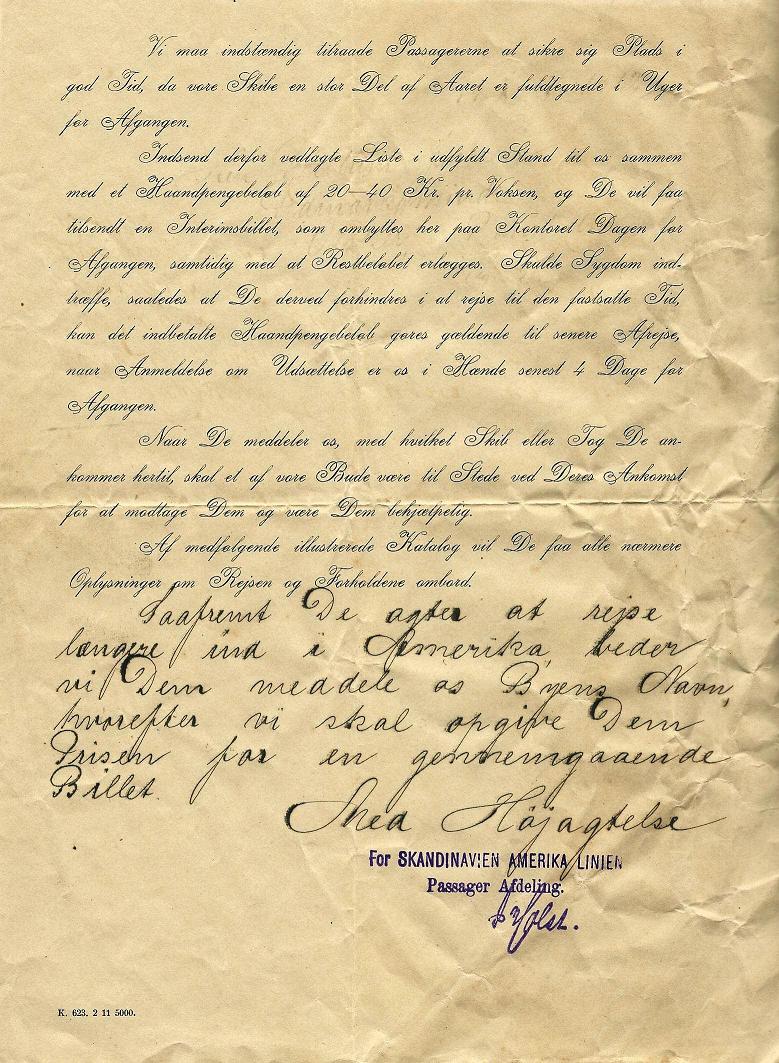 Vi maa indstændig tilraade Passagererne at sikre sig Plads i
god Tid, da vore Skibe en stor Del af Aaret er fuldtegnede i Uger
før Afgangen.
Indsend derfor vedlagte Liste i udfyldt Stand til os sammen
med et Haandpengebeløb af 20—40 Kr. pr. Voksen, og De vil faa
tilsendt en Interimsbillet, som ombyttes her paa Kontoret Dagen før
Afgangen, samtidig med at Restbeløbet erlægges. Skulde Sygdom ind-
træffe, saaledes at De derved forhindres i at rejse til den fastsatte Tid,
kan det indbetalte Haandpengebeløb gøres gældende til senere Afrejse,
naar Anmeldelse om Udsættelse er os i Hænde senest 4 Dage før
Afgangen.
Naar De meddeler os, med hvilket Skib eller Tog De an-
kommer hertil, skal et af vore Bude være til Stede ved Deres Ankomst
for at modtage Dem og være Dem behjælpelig.
Af medfølgende illustrerede Katalog vil De faa alle nærmere
Oplysninger om Rejsen og Forholdene ombord.
Saafremt De agter at rejse
længere ind i Amerika beder
vi Dem meddele os Byens Navn,
hvorefter vi skal opgive Dem
Prisen for en gennemgaaende
Billet.
Med Højagtelse
For SKANDINAVIEN AMERIKA LINIEN
Passager Afdeling.
Holst.
K. 623. 2 11 5000.